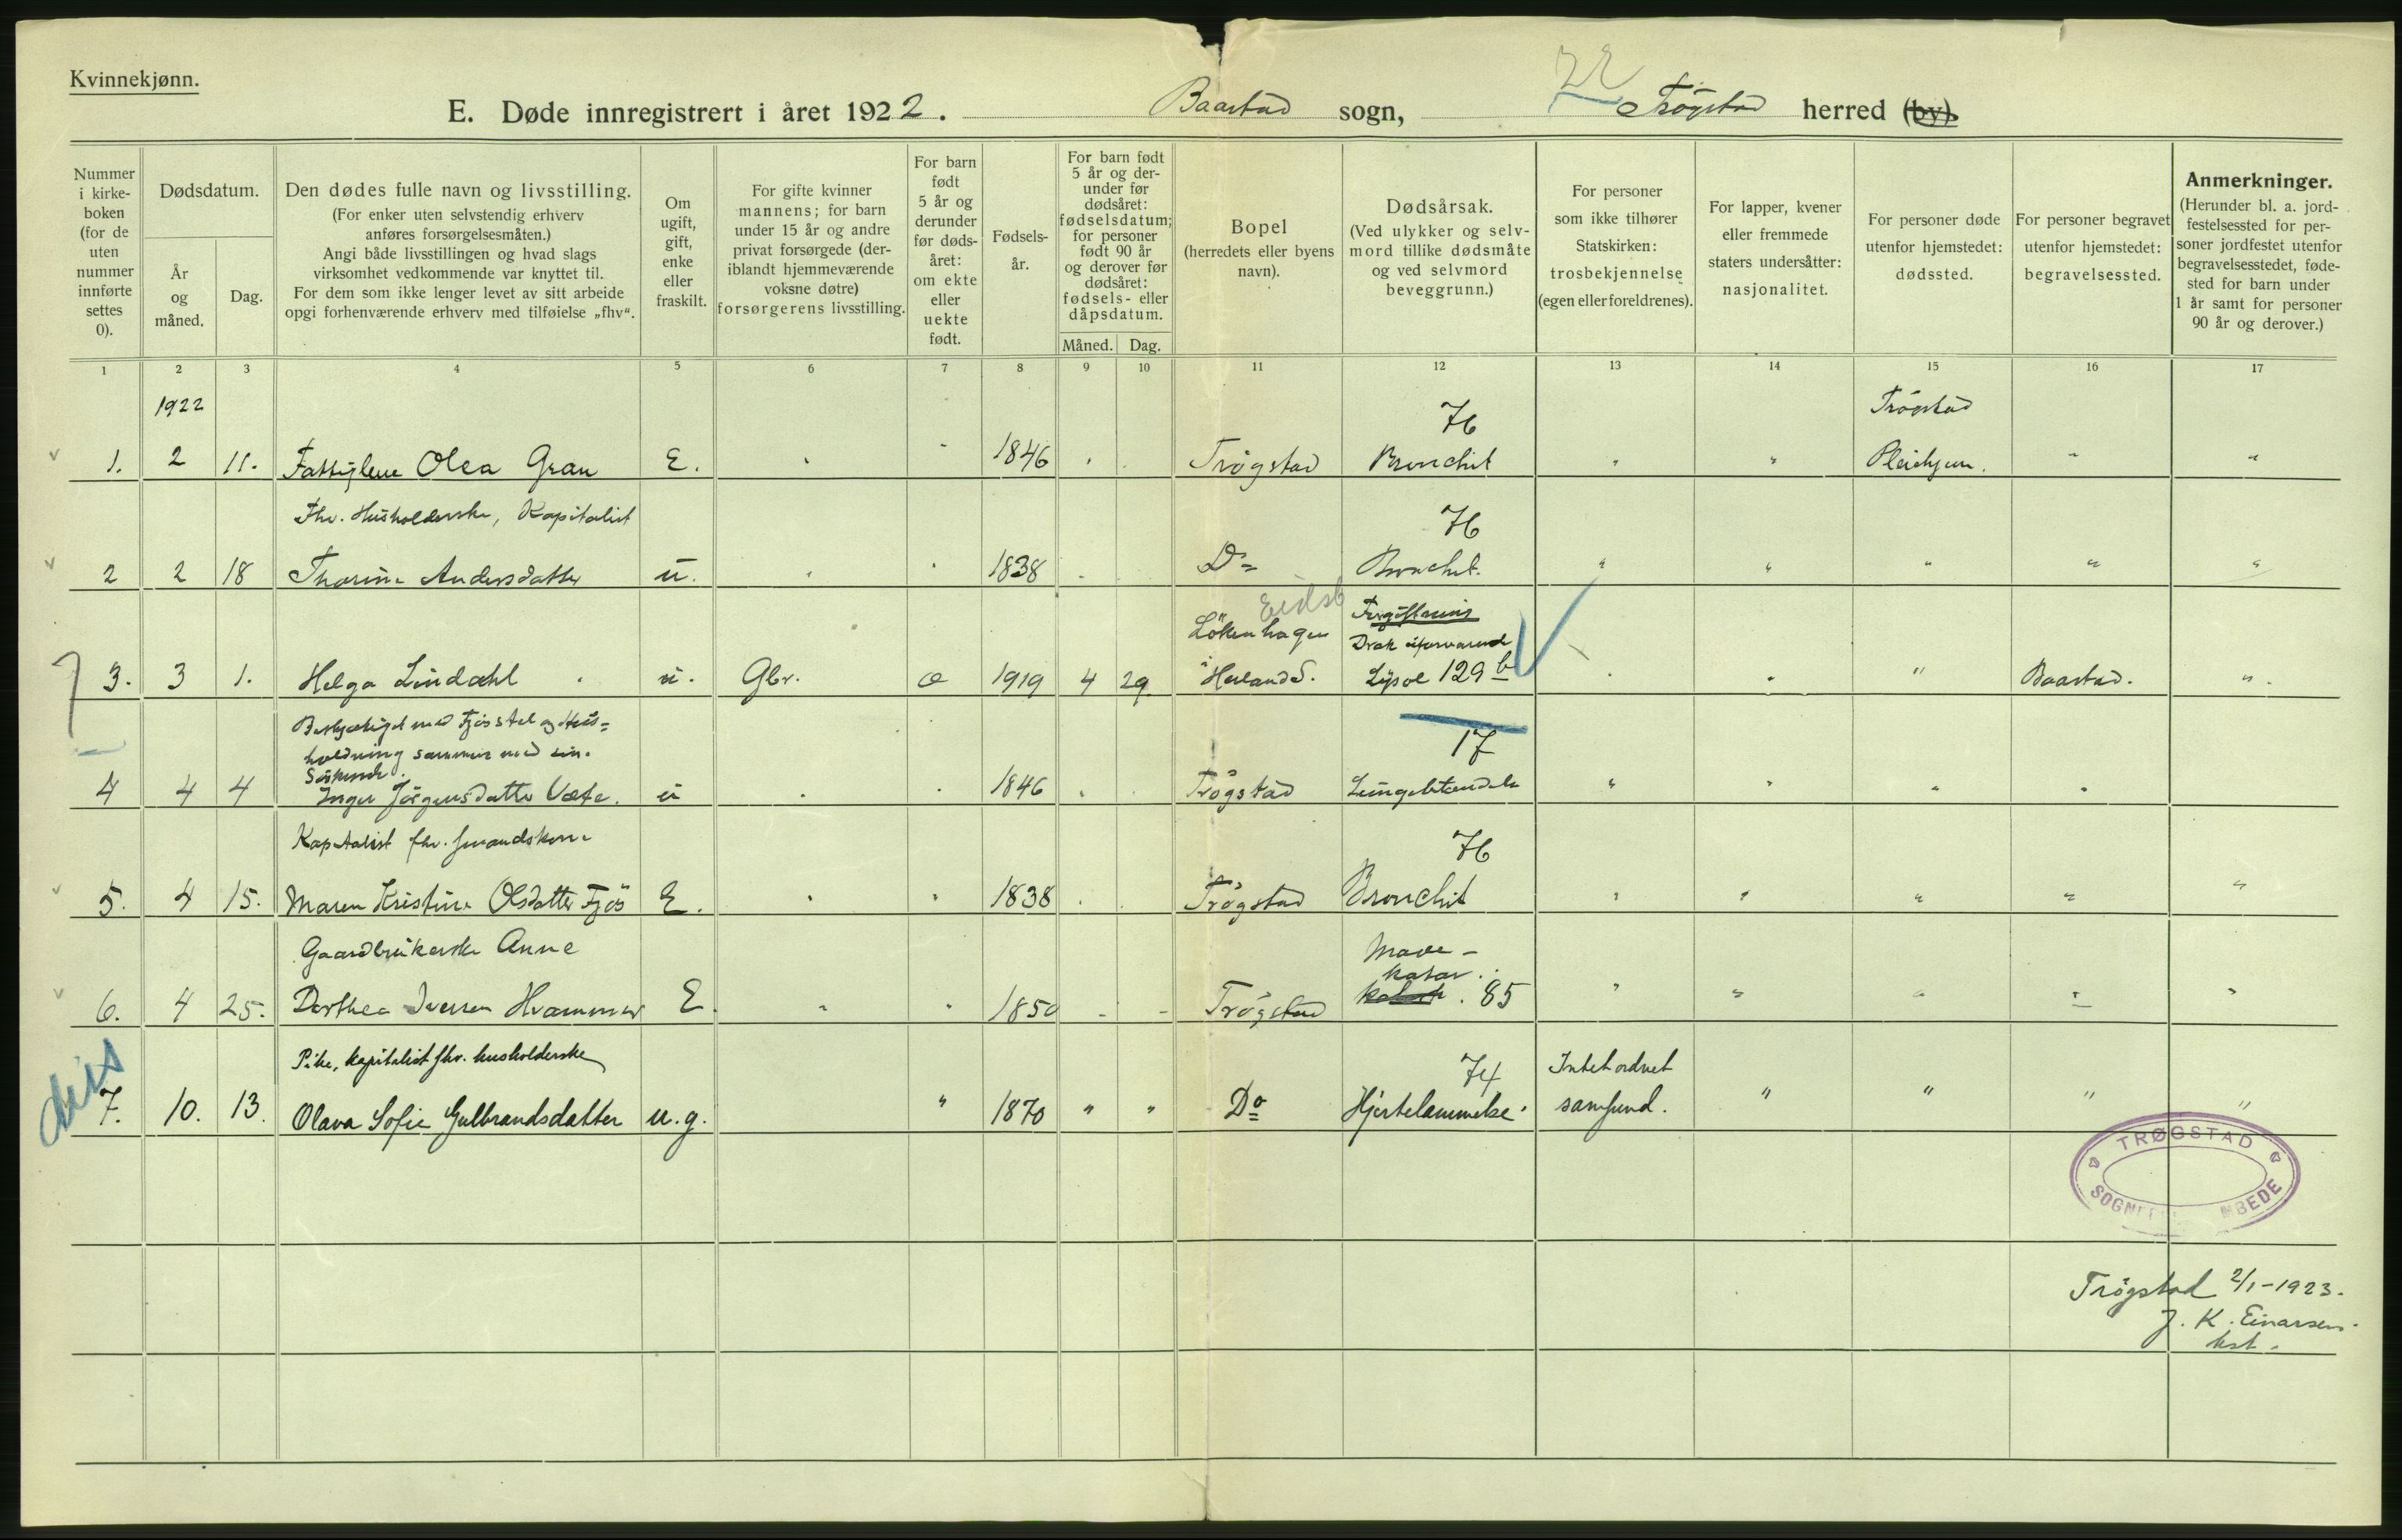 Kvinnekjønn.
E. Døde innregistrert i året 1922. Baastad sogn, Trøgstad herred (by).
22
Nummer i kirkeboken (for de uten nummer innførte settes 0).
Dødsdatum.
År og måned.
Dag.
Den dødes fulle navn og livsstilling.
(For enker uten selvstendig erhverv
anføres forsørgelsesmåten.)
Angi både livsstillingen og hvad slags
virksomhet vedkommende var knyttet til.
For dem som ikke lenger levet av sitt arbeide
opgi forhenværende erhverv med tilføielse „fhv“.
Om
ugift,
gift,
enke
eller
fraskilt.
For gifte kvinner
mannens; for barn
under 15 år og andre
privat forsørgede (der-
iblandt hjemmeværende
voksne døtre)
forsørgerens livsstilling.
For barn
født
5 år og
derunder
før døds-
året:
om ekte
eller
uekte
født.
Fødsels-
år.
For barn født
5 år og der-
under før
dødsåret:
fødselsdatum;
for personer
født 90 år
og derover før
dødsåret:
fødsels- eller
dåpsdatum.
Måned. Dag.
Bopel
(herredets eller byens
navn).
Dødsårsak.
(Ved ulykker og selv-
mord tillike dødsmåte
og ved selvmord
beveggrunn.)
For personer
som ikke tilhører
Statskirken:
trosbekjennelse
(egen eller foreldrenes).
For lapper, kvener
eller fremmede
staters undersåtter:
nasjonalitet.
For personer døde
utenfor hjemstedet:
dødssted.
For personer begravet
utenfor hjemstedet:
begravelsessted.
Anmerkninger.
(Herunder bl. a. jord-
festelsessted for per-
soner jordfestet utenfor
begravelsesstedet, føde-
sted for barn under
1 år samt for personer
90 år og derover.)
1 2 3 4 5 6 7 8 9 10 11 12 13 14 15 16 17
1922
76
Trögstad
1. 2 11. Olea Gran E. 1846 Trögstad Bronchit " " " "
Fhv. Husholderske, Kapitalist
76
2 2 18 Thorine Andersdatter u. 1838 Do Bronchit. " " " " "
Eidsb
Lökenhagen Forgiftning
Drak uforvarende
3. 3 1. Helga Lindahl u. Gbr. e 1919 4 29 i Herland S. Lysol 129 b " Baastad. "
Beskjæftiget med Fjösstel og Hus-
holdning sammen med sin
Söskende.
17
4 4 4 Inger Jörgensdatter u 1846 Trögstad Lungebetændelse " " " "
Kapitalist fhv.
76
5. 4 15. Maren Kristine Olsdatter Fjös E. 1838 Trögstad Bronchit " " " " "
Gaardbrukerske Anne
Mave-
katar.
6. 4 25. Dorthea Iversen Hvammer E. 1850 - - Trögstad 85 " " " " "
Pike, kapitalist fhv. husholderske
74
Intet ordnet
7. 10. 13. Olava Sofie Gulbrandsdatter u.g. " 1870 " " Do Hjertelammelse. samfund. " " " "
diss
TRØGSTAD
SOGNE MBEDE
Trögstad 2/1-1923.
J. K. Einarsen.
kst.